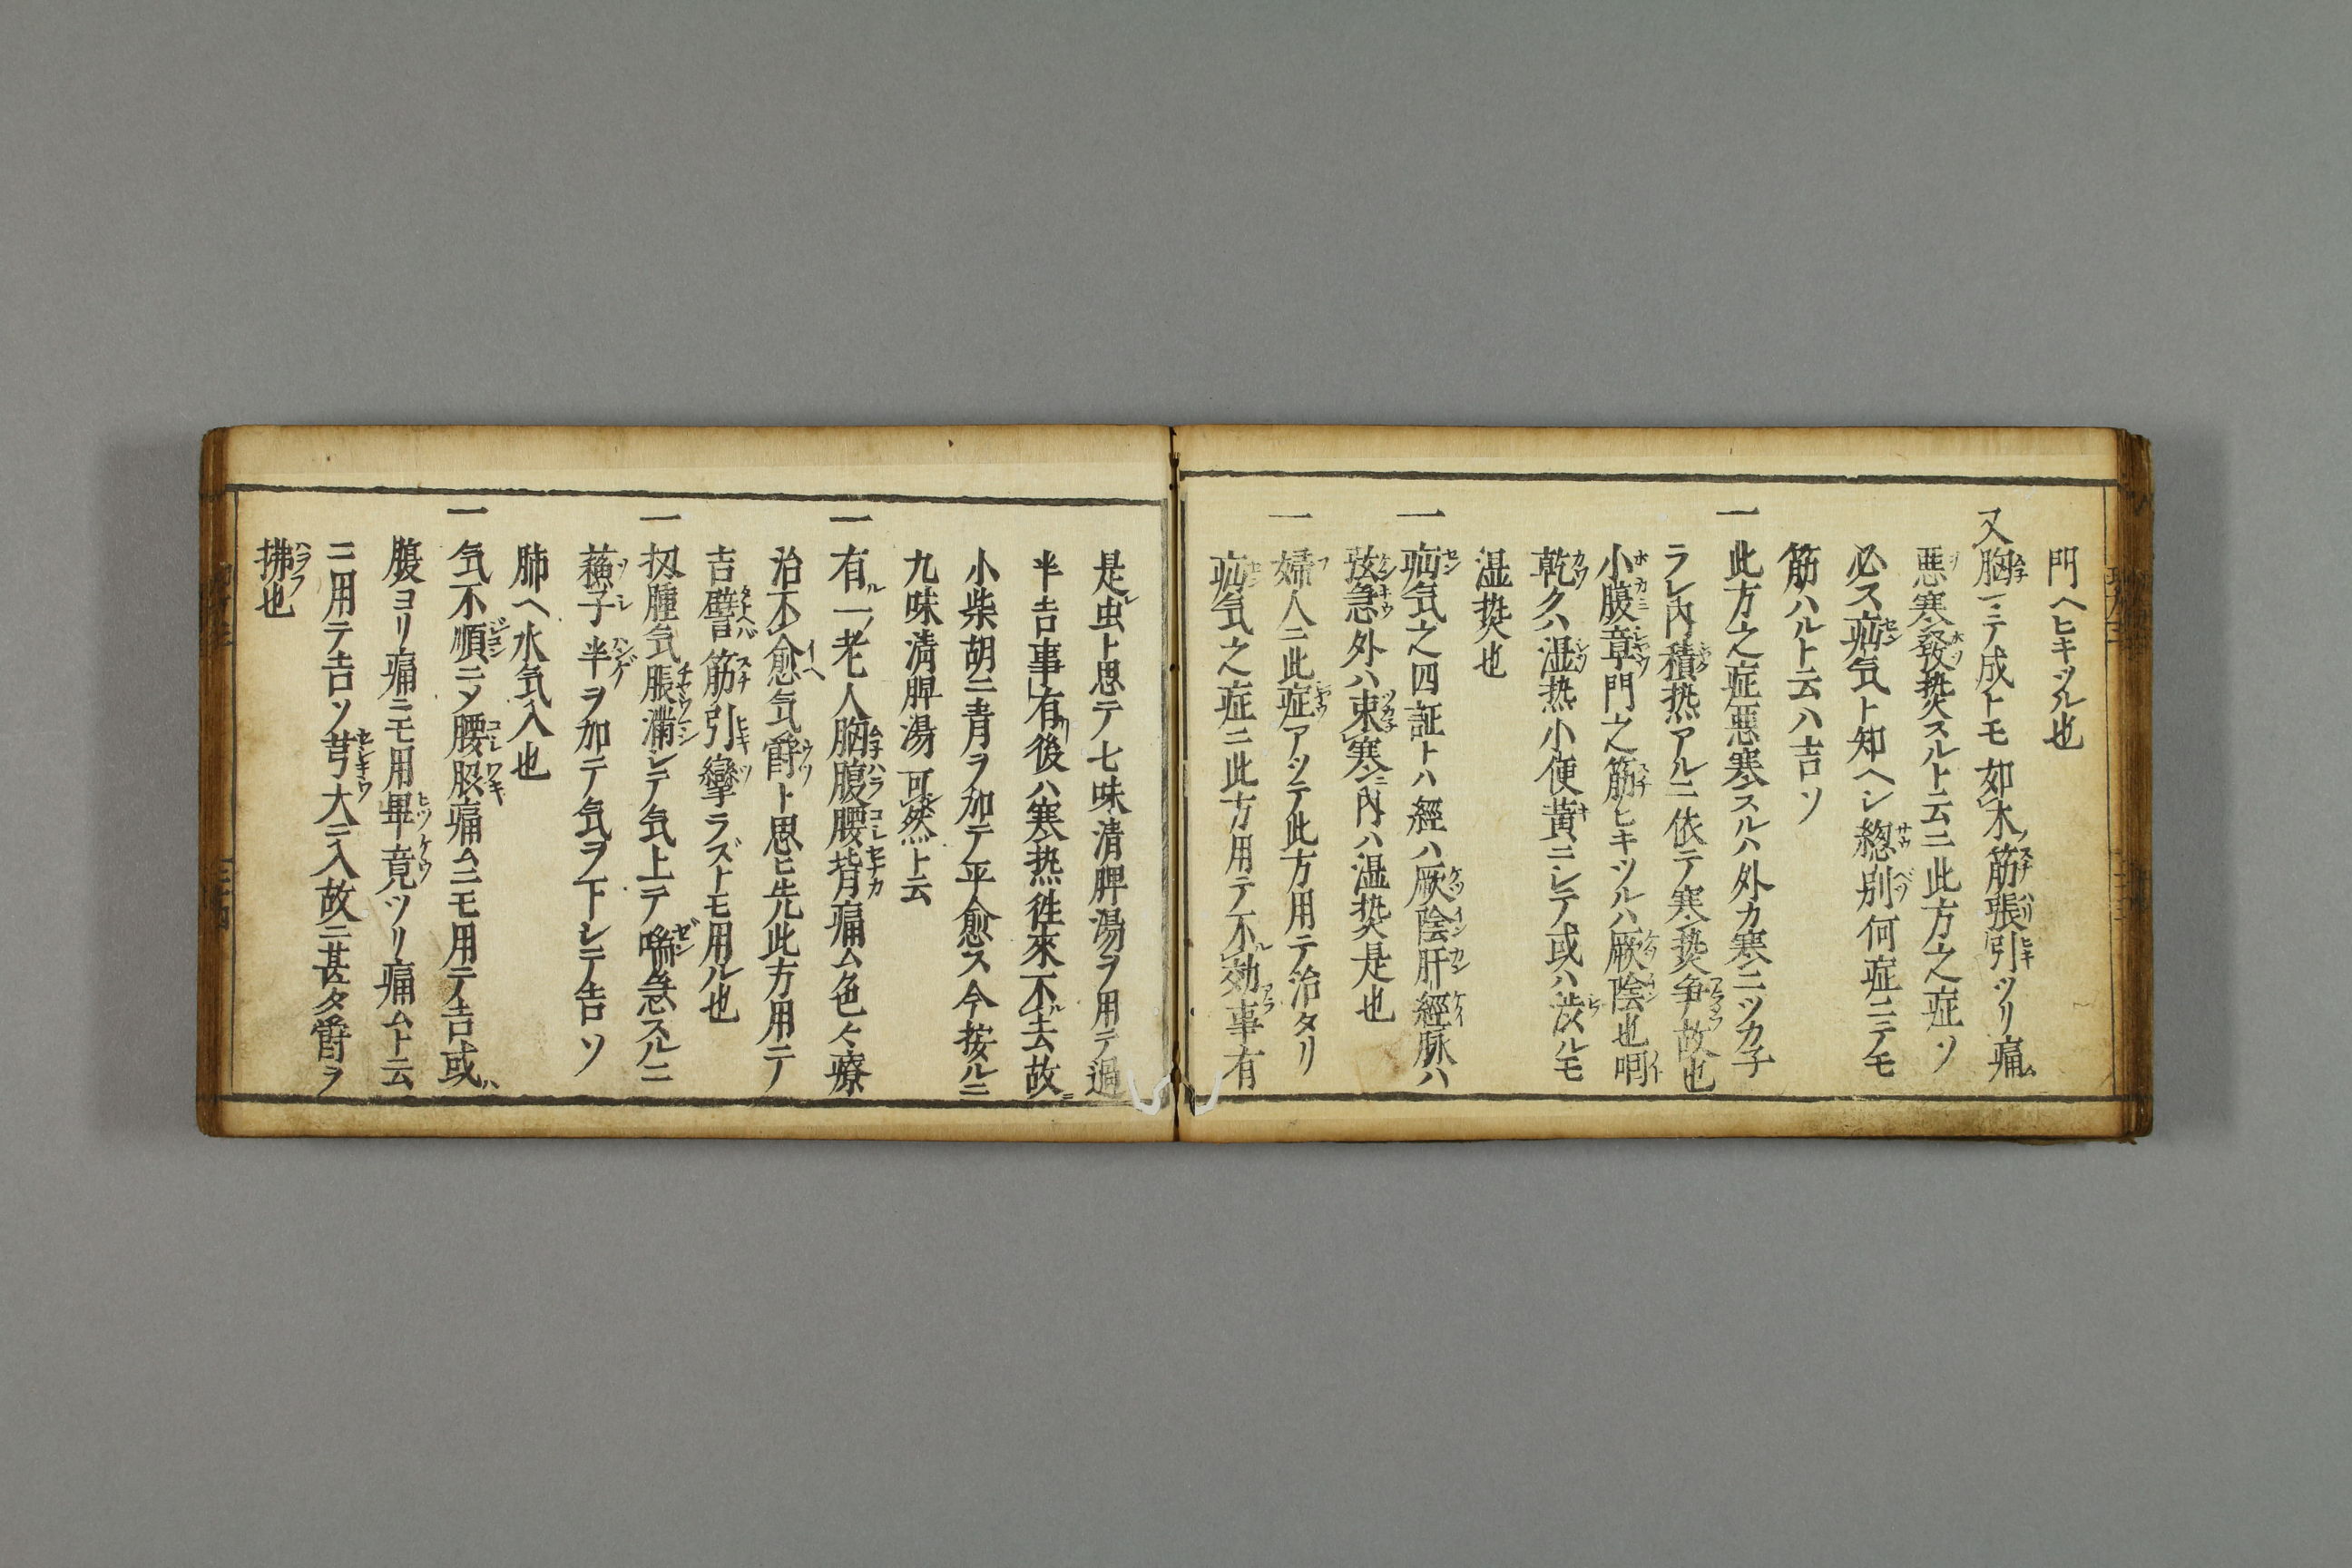 門ヘヒキツル也
又胸ニテ成トモ如木筋張引ツリ痛ム
悪寒發𤍠スルト云ニ此方之症ソ
必ス疝気ト知ヘシ総別何症ニテモ
筋ハルト云ハ吉ソ
一此方之症悪寒スルハ外カ寒ニツカ子
ラレ内積热アルニ依テ寒𤍠争故也
小腹章門之筋ヒキツルハ厥陰也
乾久ハ湿热小便黄ニシテ或ハ渋ルモ
湿𤍠也
一疝気之四証トハ經ハ厥陰肝經脉ハ
弦急外ハ束寒ニ内ハ温𤍠是也
一婦人ニ此症アツテ此方用テ治タリ
疝気之症ニ此方用テ不効事有
是虫ト思テ七味清脾湯ヲ用テ過
半吉事有後ハ寒热往來不去故ニ
小柴胡ニ青ヲ加テ平愈ス今按ルニ
九味清脾湯可然ト云
一有一老人胸腹腰背痛ム色々療
治不愈気欝ト思ヒ先此方用テ
吉譬筋引攣ラズトモ用ル也
一扨腫気脹満シテ気上テ喘急スルニ
蘓子半ヲ加テ気ヲ下シテ吉ソ
肺ヘ水気入也
一気不順ニメ腰脇痛ムニモ用テ吉或ハ
腹ヨリ痛ニモ用畢竟ツリ痛ムト云
ニ用テ吉ソ芎大ニ入故ニ甚タ欝ヲ
拂也